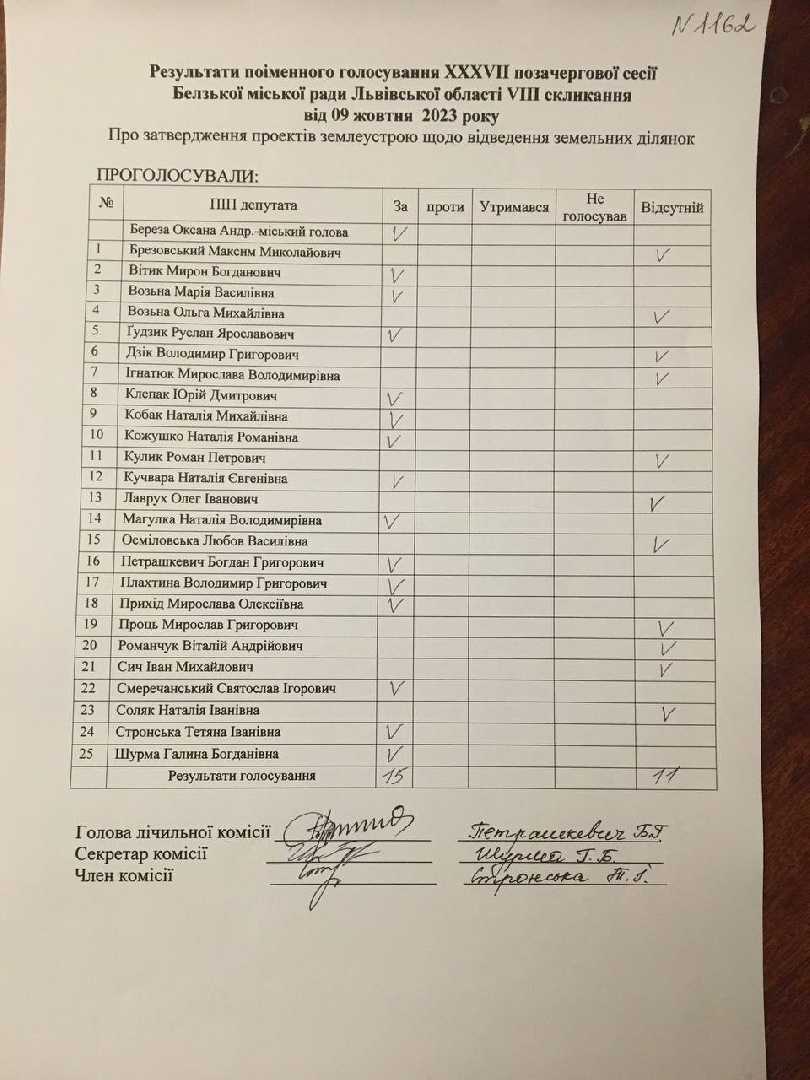 N 1162
Результати поіменного голосування XXXVII позачергової сесії
Белзької міської ради Львівської області VIII скликання
від 09 жовтня 2023 року
Про затвердження проектів землеустрою щодо відведення земельних ділянок
ПРОГОЛОСУВАЛИ:
№ ПІП депутата За проти Утримався Не голосував Відсутній
Береза Оксана Андр.–міський голова V
1 Брезовський Максим Миколайович V
2 Вітик Мирон Богданович V
3 Возьна Марія Василівна V
4 Возьна Ольга Михайлівна V
5 Ґудзик Руслан Ярославович V
6 Дзік Володимир Григорович V
7 Ігнатюк Мирослава Володимирівна V
8 Клепак Юрій Дмитрович V
9 Кобак Наталія Михайлівна V
10 Кожушко Наталія Романівна V
11 Кулик Роман Петрович V
12 Кучвара Наталія Євгенівна V
13 Лаврух Олег Іванович V
14 Магулка Наталія Володимирівна V
15 Осміловська Любов Василівна V
16 Петрашкевич Богдан Григорович V
17 Плахтина Володимир Григорович V
18 Прихід Мирослава Олексіївна V
19 Проць Мирослав Григорович V
20 Романчук Віталій Андрійович V
21 Сич Іван Михайлович V
22 Смеречанський Святослав Ігорович V
23 Соляк Наталія Іванівна V
24 Стронська Тетяна Іванівна V
25 Шурма Галина Богданівна V
Результати голосування 15 11
Голова лічильної комісії Петрашкевич Б.Г.
Секретар комісії Шурма Г.Б.
Член комісії Стронська Т.І.